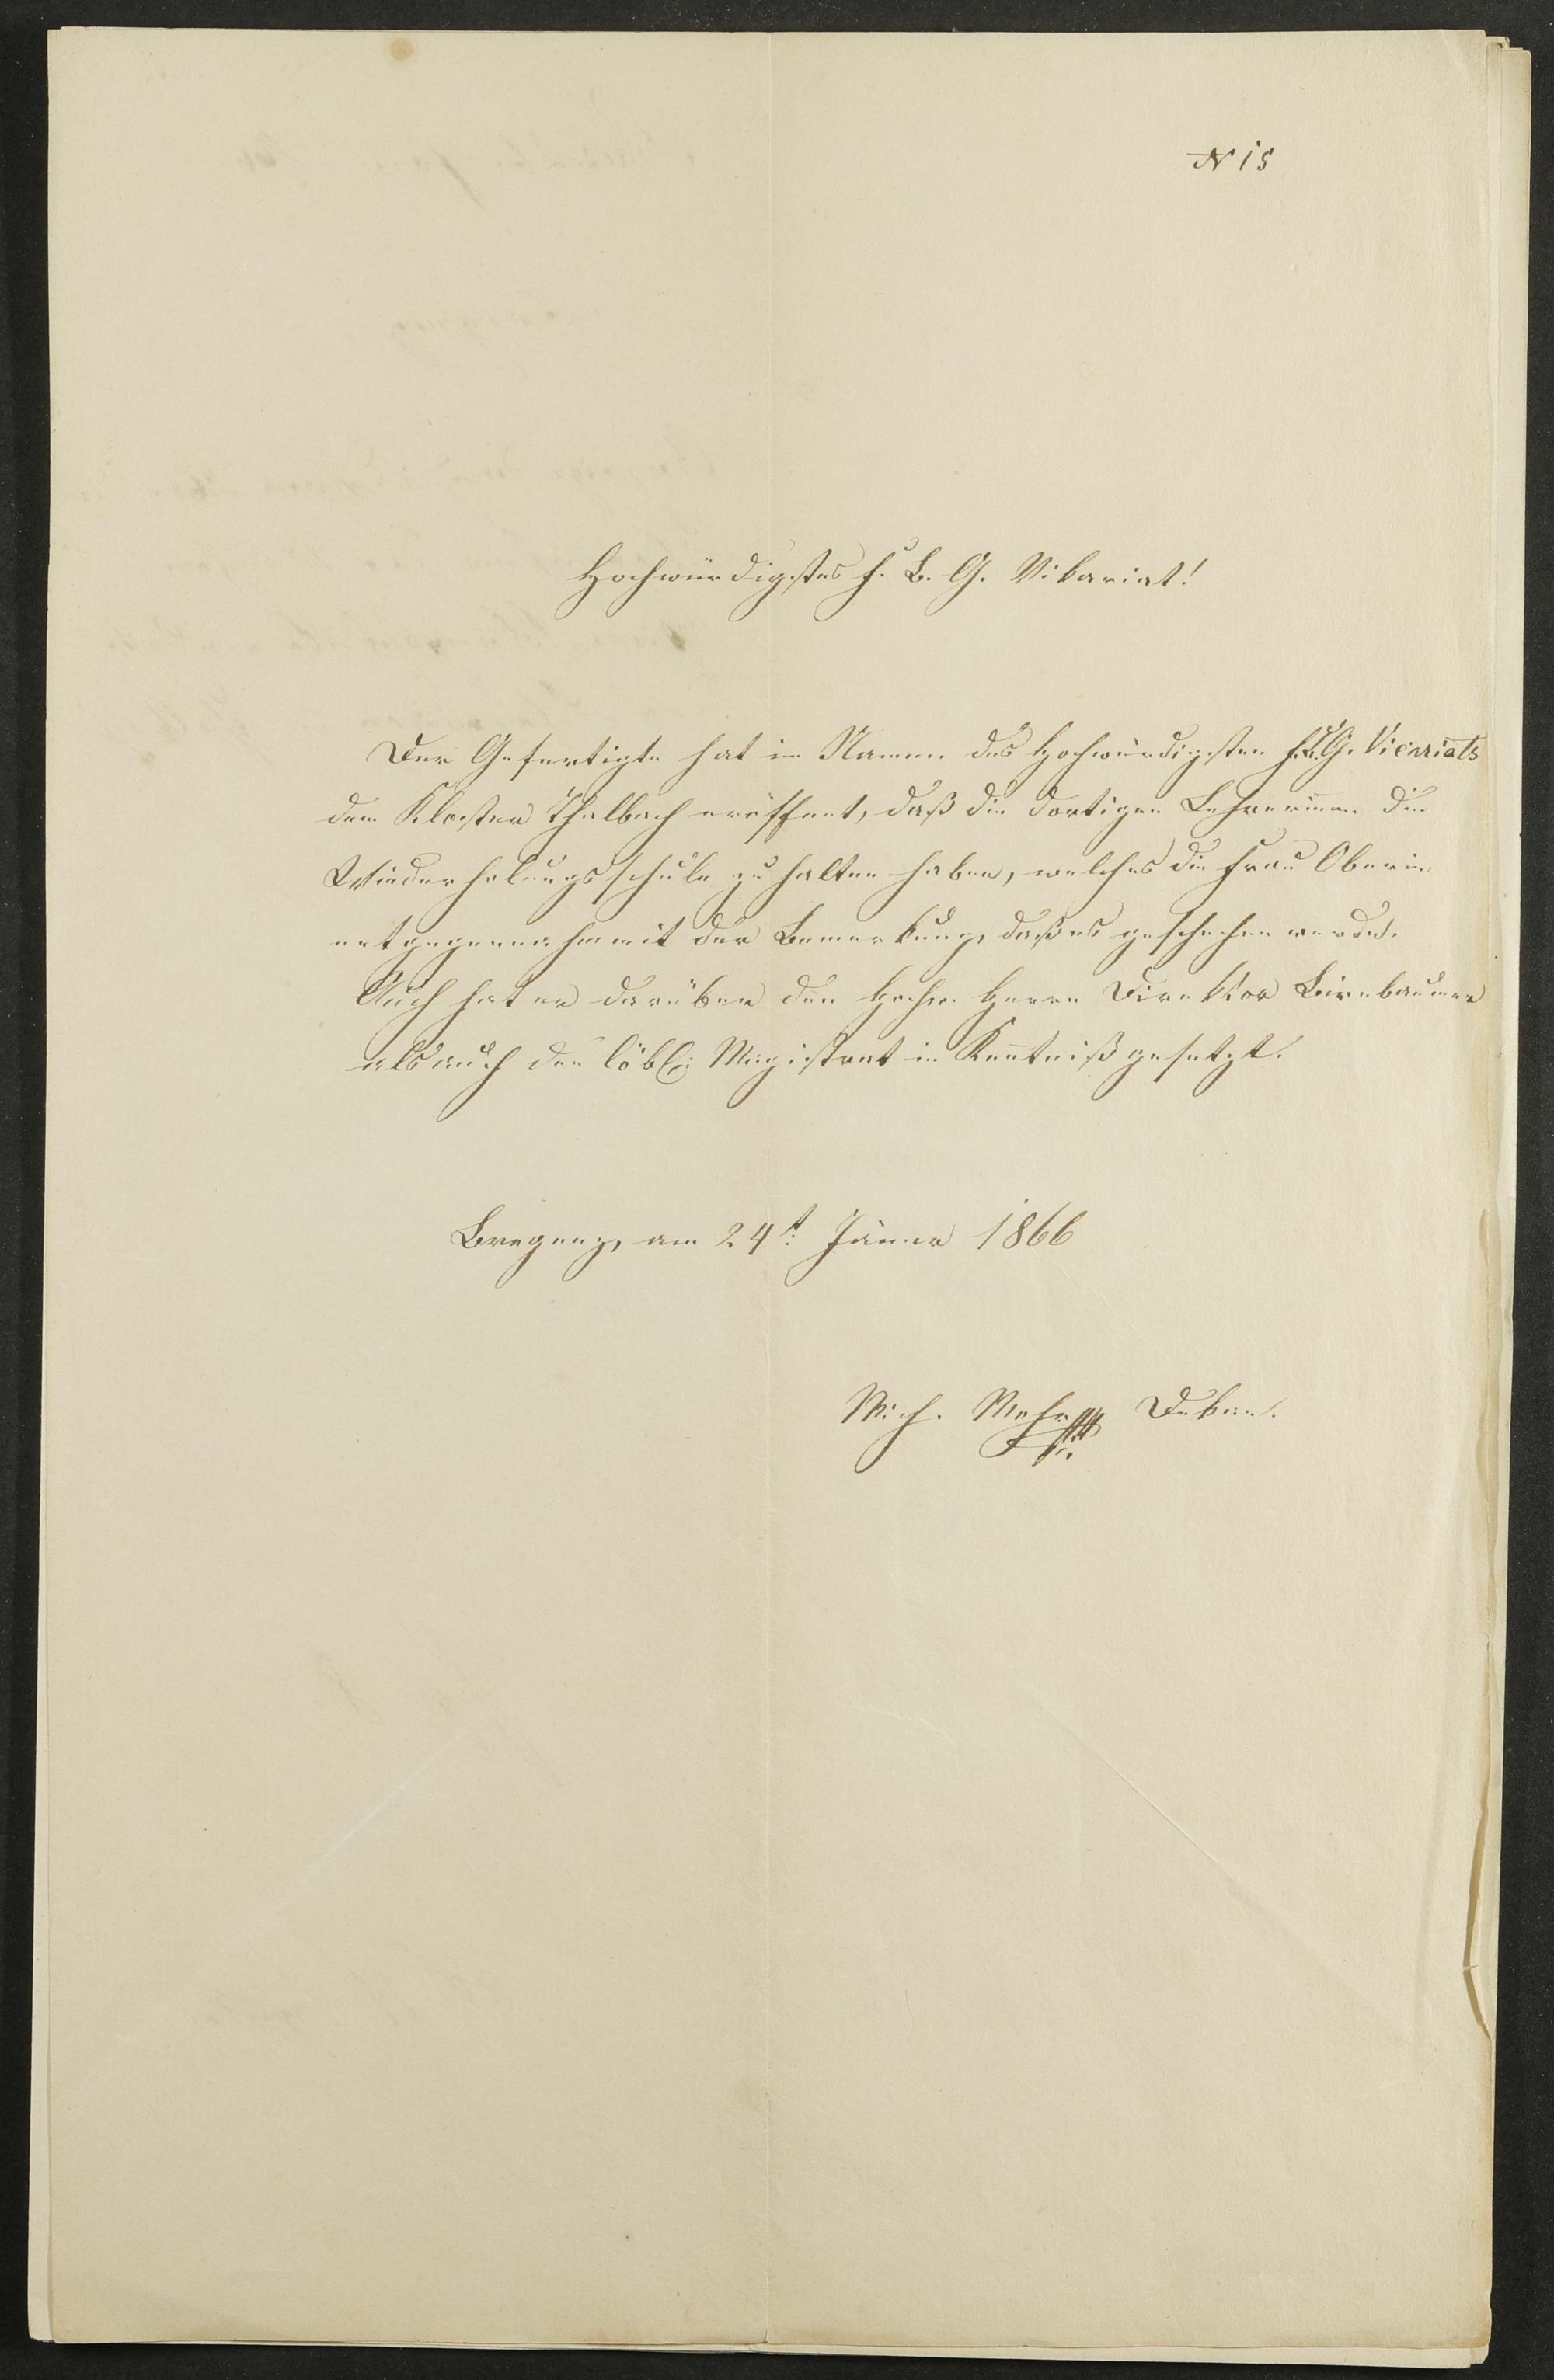 N 15
Hochwürdigstes f. b. G. Vikariat!
Der Gefertigte hat im Namen des Hochwürdigsten f. b. G. Vicariats
dem Kloster Thalbach eröffnet, daß die dortigen Lehrerinen die
Wiederholungsschule zu halten haben, welches die Frau Oberin
entgegennahm mit der Bemerkung, daß es geschehen werde.
Auch hat er darüber den Hochw. Herrn Direktor Birnbaumer
als auch den löbl: Magistrat in Kentniß gesetzt.
Bregenz, am 24t: Jänner 1866
Mich. Dekan.